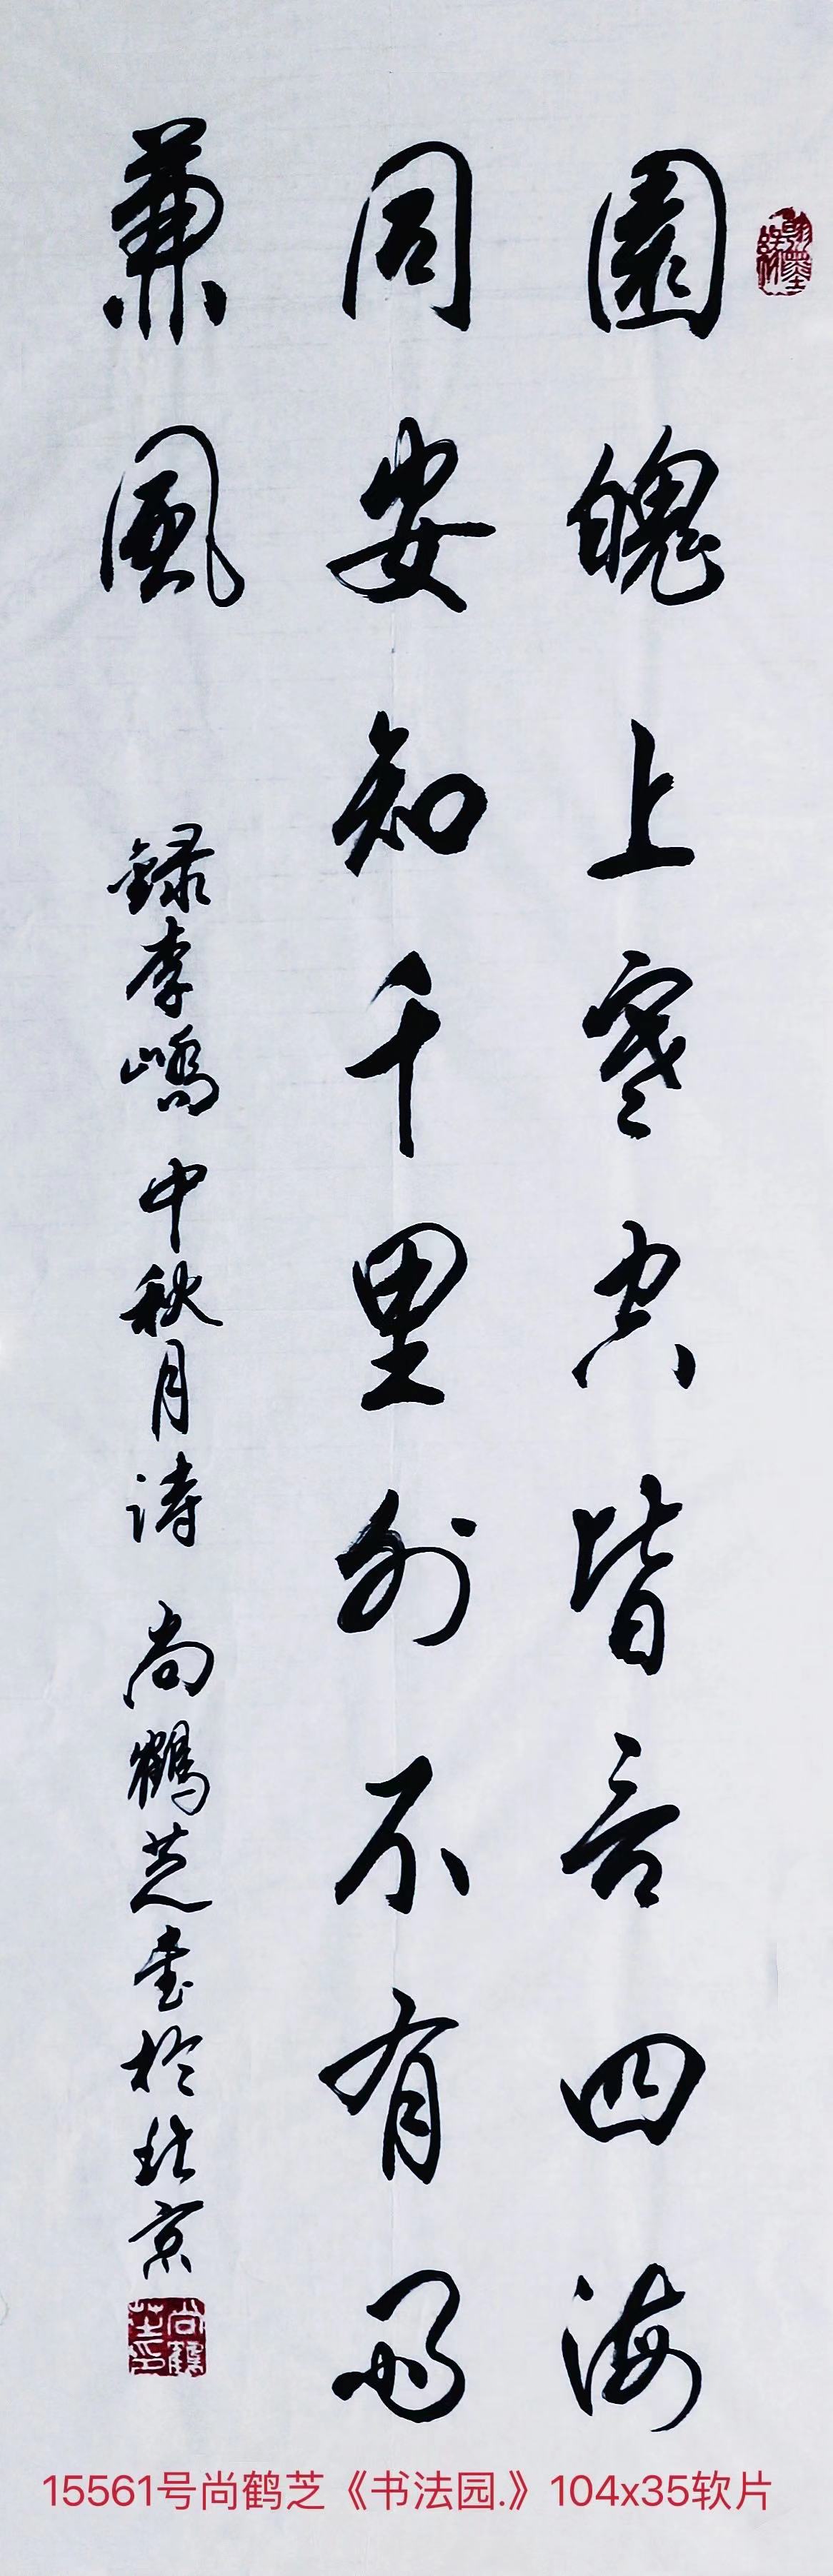 圓魄上寒空皆言四海
同安知千里外不有雨
兼風
録李嶠中秋月詩 尚鶴芝書於北京
尚鶴芝印
15561号尚鹤芝《书法园.》104x35软片